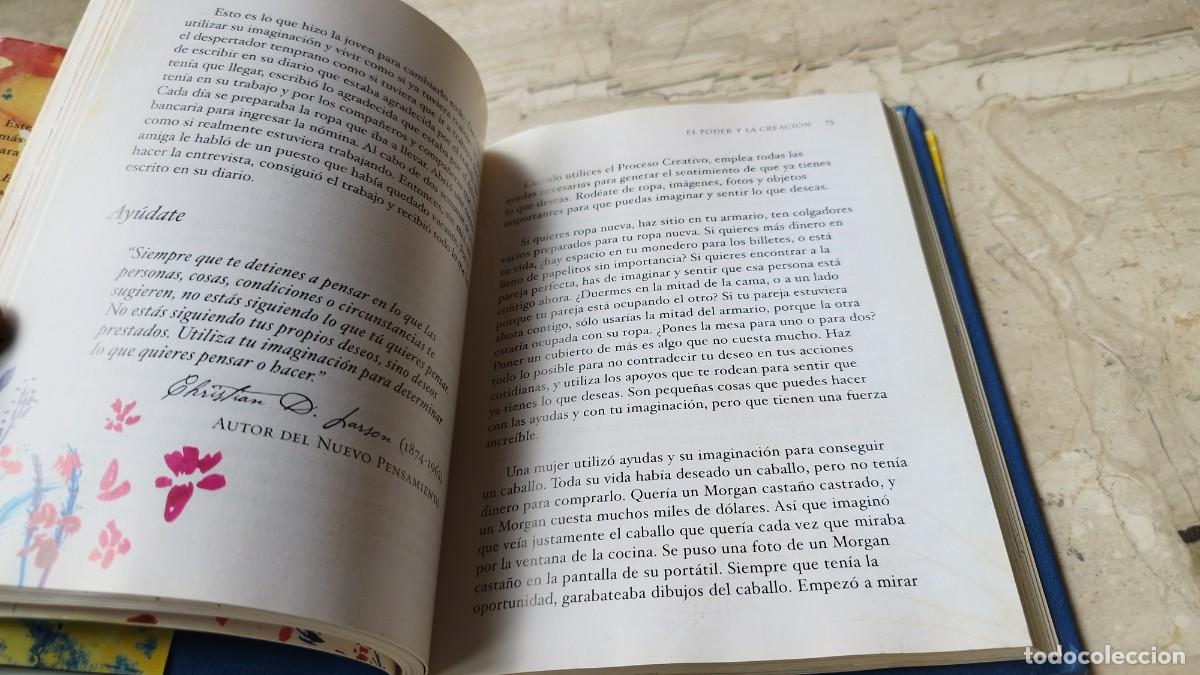 Esto es lo que hizo la joven para cambiarlo todo
utilizar su imaginación y vivir como si ya tuviera
el despertador temprano como si tuviera que ir a
de escribir en su diario que estaba agradecida por el
tenía que llegar, escribió lo agradecida que estaba por
tenía en su trabajo y por los compañeros y compañeras
Cada día se preparaba la ropa que iba a llevar. Abrió
bancaria para ingresar la nómina. Al cabo de dos
como si realmente estuviera trabajando. Entonces, una
amiga le habló de un puesto que había quedado vacante.
hacer la entrevista, consiguió el trabajo y recibió todo lo
escrito en su diario.
Ayúdate
“Siempre que te detienes a pensar en lo que las
personas, cosas, condiciones o circunstancias te
sugieren, no estás siguiendo lo que tú quieres pensar
No estás siguiendo tus propios deseos, sino deseos
prestados. Utiliza tu imaginación para determinar
lo que quieres pensar o hacer.”
Christian D. Larson (1874-1962)
AUTOR DEL NUEVO PENSAMIENTO
EL PODER Y LA CREACIÓN 75
Cuando utilices el Proceso Creativo, emplea todas las
ayudas necesarias para generar el sentimiento de que ya tienes
lo que deseas. Rodéate de ropa, imágenes, fotos y objetos
importantes para que puedas imaginar y sentir lo que deseas.
Si quieres ropa nueva, haz sitio en tu armario, ten colgadores
vacíos preparados para tu ropa nueva. Si quieres más dinero en
tu vida, ¿hay espacio en tu monedero para los billetes, o está
lleno de papelitos sin importancia? Si quieres encontrar a la
pareja perfecta, has de imaginar y sentir que esa persona está
contigo ahora. ¿Duermes en la mitad de la cama, o a un lado
porque tu pareja está ocupando el otro? Si tu pareja estuviera
ahora contigo, sólo usarías la mitad del armario, porque la otra
estaría ocupada con su ropa. ¿Pones la mesa para uno o para dos?
Poner un cubierto de más es algo que no cuesta mucho. Haz
todo lo posible para no contradecir tu deseo en tus acciones
cotidianas, y utiliza los apoyos que te rodean para sentir que
ya tienes lo que deseas. Son pequeñas cosas que puedes hacer
con las ayudas y con tu imaginación, pero que tienen una fuerza
increíble.
Una mujer utilizó ayudas y su imaginación para conseguir
un caballo. Toda su vida había deseado un caballo, pero no tenía
dinero para comprarlo. Quería un Morgan castaño castrado, y
un Morgan cuesta muchos miles de dólares. Así que imaginó
que veía justamente el caballo que quería cada vez que miraba
por la ventana de la cocina. Se puso una foto de un Morgan
castaño en la pantalla de su portátil. Siempre que tenía la
oportunidad, garabateaba dibujos del caballo. Empezó a mirar
todocoleccion